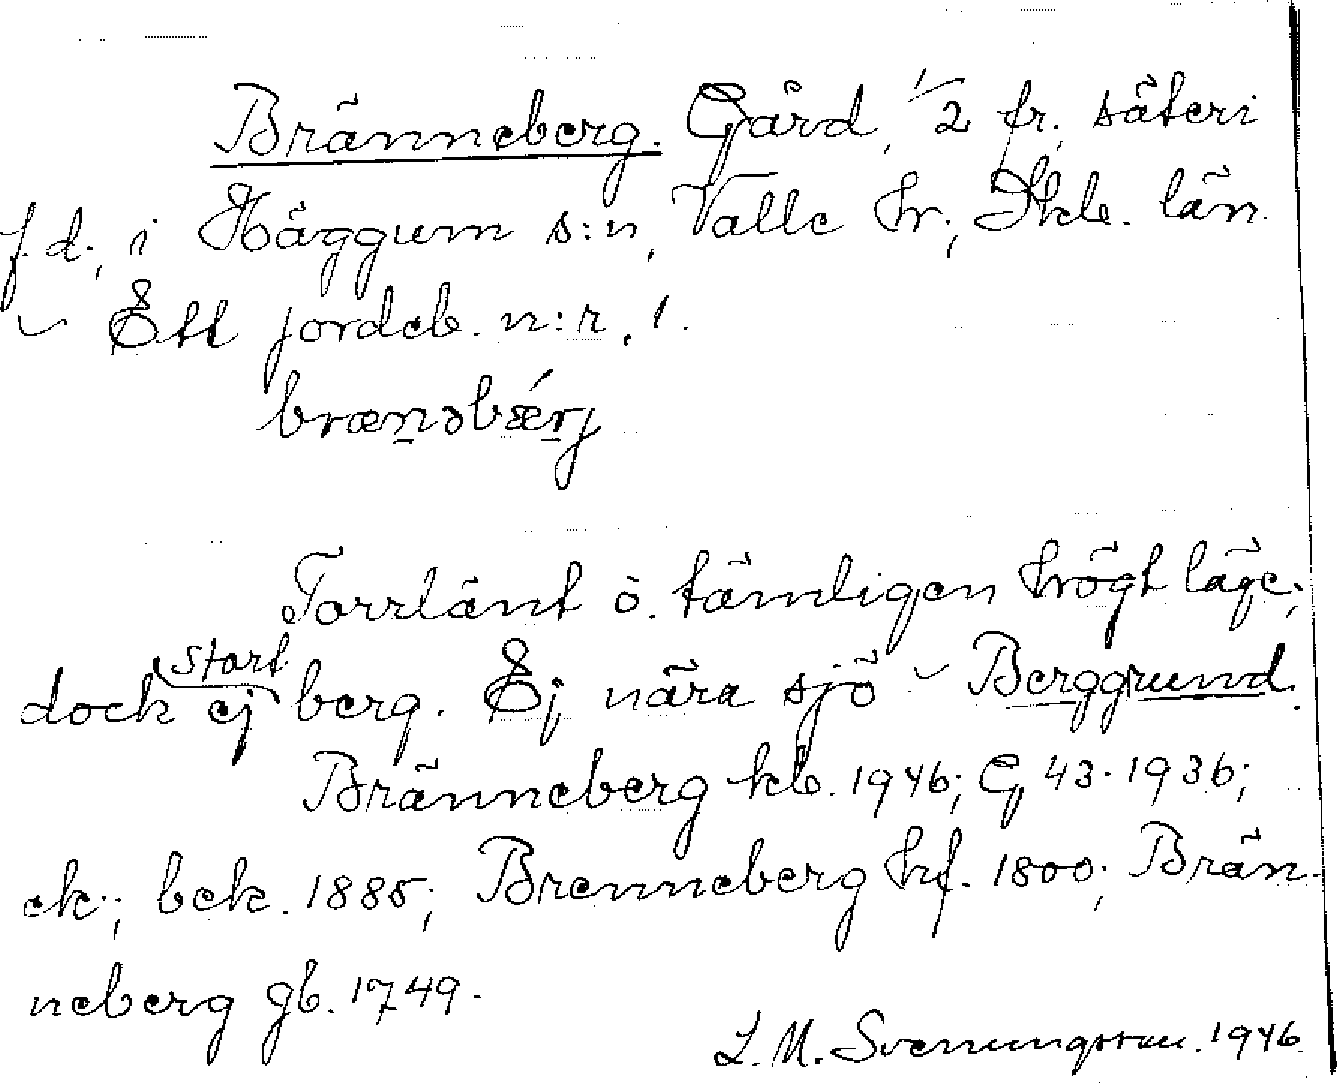 Bränneberg. Gård, 1/2 fr. säteri
f. d., i Häggum s:n, Valle hr, Skb. län.
~ Ett jordeb. n:r, 1.
brænəbǽrj
Torrlänt o. tämligen högt läge;
stort
dock ej berg. Ej nära sjö ~ Berggrund.
Bränneberg kb. 1946; G 43. 1936;
ek; bek. 1885; Brenneberg hf. 1800; Brän-
neberg gb. 1749.
L. M. Svenungsson. 1946